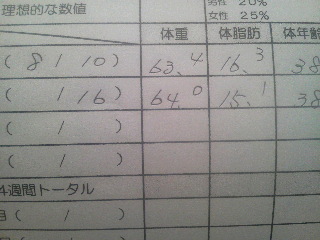 理想的な数値
男性 20%
女性 25%
体重 体脂肪 体年齢
( 8 / 10 ) 63.4 16.3 38
( / 16 ) 64.0 15.1 38
( / )
( / )
4週間トータル
( / )